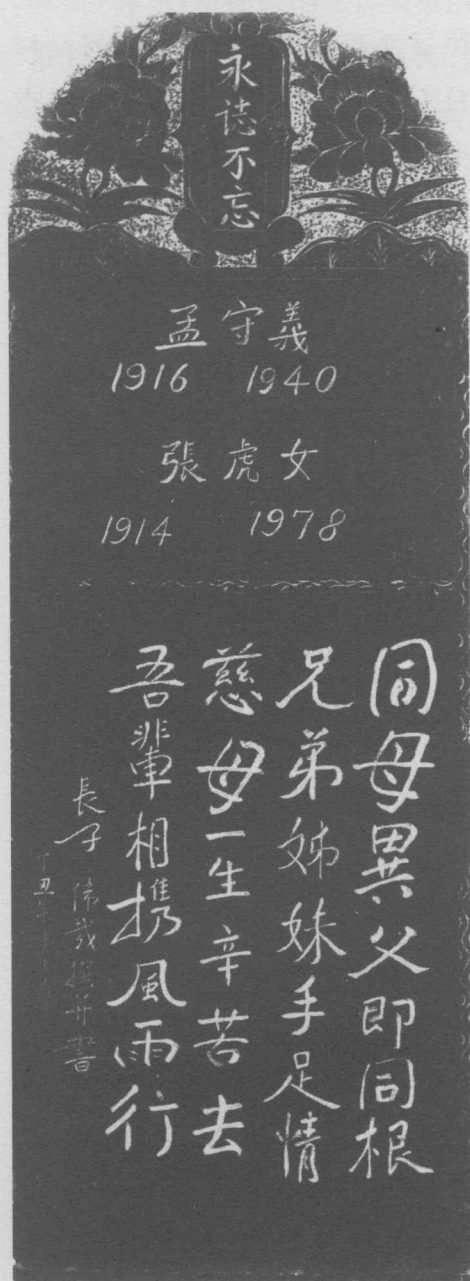 永誌不忘
孟守義
1916 1940
張虎女
1914 1978
同母異父即同根
兄弟姊妹手足情
慈母一生辛苦去
吾輩相携風雨行
長子 偉哉撰并書
丁丑年